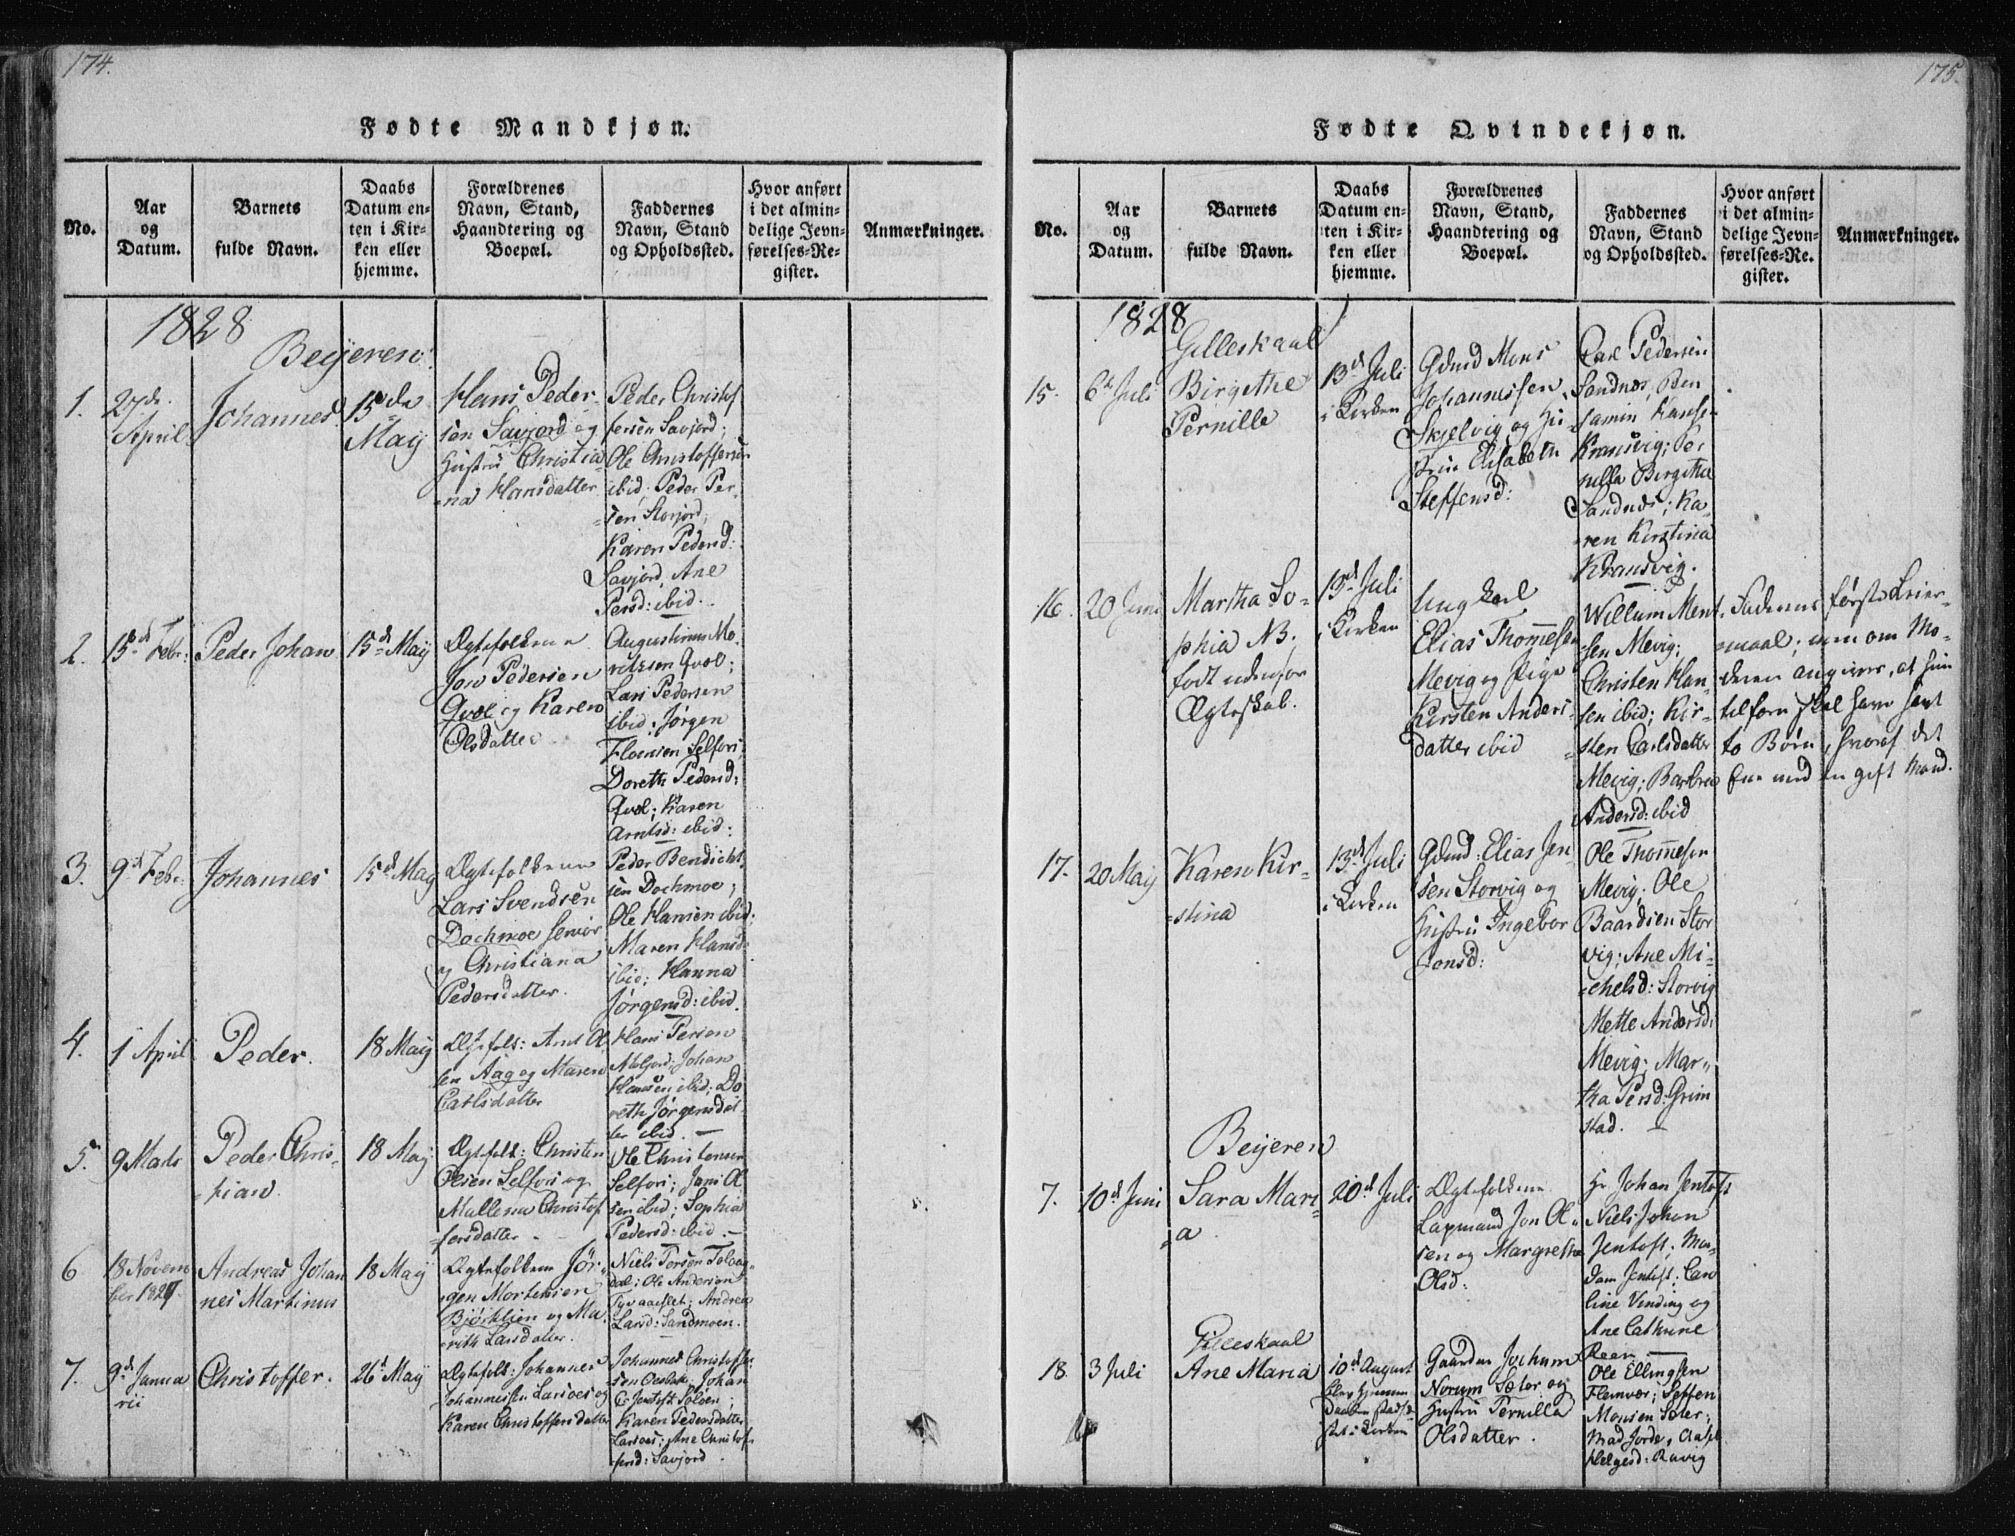 174.
Fødte Mandkjøn.
No.
Aar
og
Datum.
Barnets
fulde Navn.
Daabs
Datum en-
ten i Kir-
ken eller
hjemme.
Forældrenes
Navn, Stand,
Haandtering og
Boepæl.
Faddernes
Navn, Stand
og Opholdssted.
Hvor anført
i det almin-
delige Jevn-
førelses-Re-
gister.
Anmærkninger.
1828
Beijeren
1.
27de
April
Johannes
15de
Maij
Hans Peder-
sen Savjord og
Hustru Christia
-na Hansdatter
Peder Christof
fersen Savjord;
Ole Christoffersen
ibid; Peder Per-
-sen Storjord;
Karen Pedersd:
Savjord, Ane
Persd: ibid.
2.
15de Febr:
Peder Johan
15de Maij
Ægtefolkene
Jon Pedersen
Qvæl og Karen
Olsdatter
Augustinus Mo-
ritzsen Qvæl;
Lars Pedersen
ibid; Jørgen
Selfori;
Doreth Pedersd:
Qvæl; Karen
Arntsd: ibid:
3.
9de Febr:
Johannes
15de Maij
Ægtefolkene
Lars Svendsen
Dochmoe senior
og Christiana
Pedersdatter.
Peder Bendicht
sen Dochmoe;
Ole Hansen ibid;
Maren Hansd:
ibid; Hanna
Jørgensd: ibid.
4.
1 April
Peder.
18 Maij
Ægtefolk: Arnt Ol
sen Aag og Maren
Carlsdatter
Hans Persen
Moljord; Johan
Hansen ibid; Do
reth Jørgensdat-
ter ibid. —
5.
9 Marts
Peder Chris-
-tian
18 Maij
Ægtefolk: Christen
Olsen Selfori og
Mallena Christof
-fersdatter
Ole Christensen
Selfori; Jens Ol
sen ibid; Sophia
Pedersd: ibid —
6
18 Novem
ber 1827
Andreas Johan
nes Martinus
18 Maij
Ægtefolkene Jør-
gen Mortensen
Bjørklien og Ma-
rith Larsdatter.
Niels Torsen Tolaa-
dal; Ole Andersen
Andrea
Larsd: Sandmoen.
7.
9de Janua
rii
Christoffer.
26de Maij
Ægtefolk: Johannes
Johannessen Larsoes og
Karen Christoffersdatter
Johannes Christoffer
Johan
Jentoft Soløen;
Karen Pedersdatter
Larsoes; Ane Christof
fersd: Savjord.
175.
Fødte Qvindekjøn.
No.
Aar
og
Datum.
Barnets
fulde Navn.
Daabs
Datum en-
ten i Kir-
ken eller
hjemme.
Forældrenes
Navn, Stand,
Haandtering og
Boepæl.
Faddernes
Navn, Stand
og Opholdssted.
Hvor anført
i det almin-
delige Jevn-
førelses-Re-
gister.
Anmærkninger.
1828
Gilleskaal
15.
6te Juli
Birgethe
Pernille
13de Juli
i Kirken
Gdmd Mons
Johannessen
Skjelvig og Hu
stru Elisabeth
Steffensd:
Carl Pedersen
Sandnes; Ben
jamin Hanse-
Kransvig; Per
nilla Birgitha
Sandnes; Ka-
-ren Kirstina
Kransvig.
16.
20 Juni
Martha So-
phia NB.
født udenfor
Ægteskab.
13de Juli
i Kirken
Ung karl
Elias Thommesen
Mevig og Pige
Kirsten Anders-
datter ibid
Willum Ment
sen Mevig;
Christen Han-
sen ibid; Kir-
-sten Carlsdatter
Mevig; Barbra
Andersd: ibid
Faderens første Leier-
maal; men om Mo-
deren angives, at hun
tilforn skal have havt
to Børn, hvoraf det
Ene med en gift Mand.
17.
20 Maij
Karen Kir-
-stina
13de Juli
i Kirken
Gdmd: Elias Jen
sen Storvig og
Hustru Ingebor
Jonsd:
Ole Thommesen
Mevig; Ole
Baardsen Stor
vig; Ane Mi-
-chelsd: Storvig
Mette Andersd:
Mevig; Mar-
tha Persd: Grim
stad. —
Beijeren
7.
10de Juni
Sara Mari
-a
20de Juli
Ægtefolkene
Lapmand Jon Ol-
sen og Margrethe
Olsd:
Hr Johan Jentoft
Niels Johan
Jentoft; Ma-
dam Jentoft; Caro
line Vending og
Ane Cathrine
Reen —
Gilleskaal
18
3 Juli
Ane Maria
10de August
i Kirken
Gaardm Jochum
Norum Sæter og
Hustru Pernilla
Olsdatter.
Ole Ellingsen
Fleinvær; Steffen
Monsen Sæter;
Helgesd: Ravig